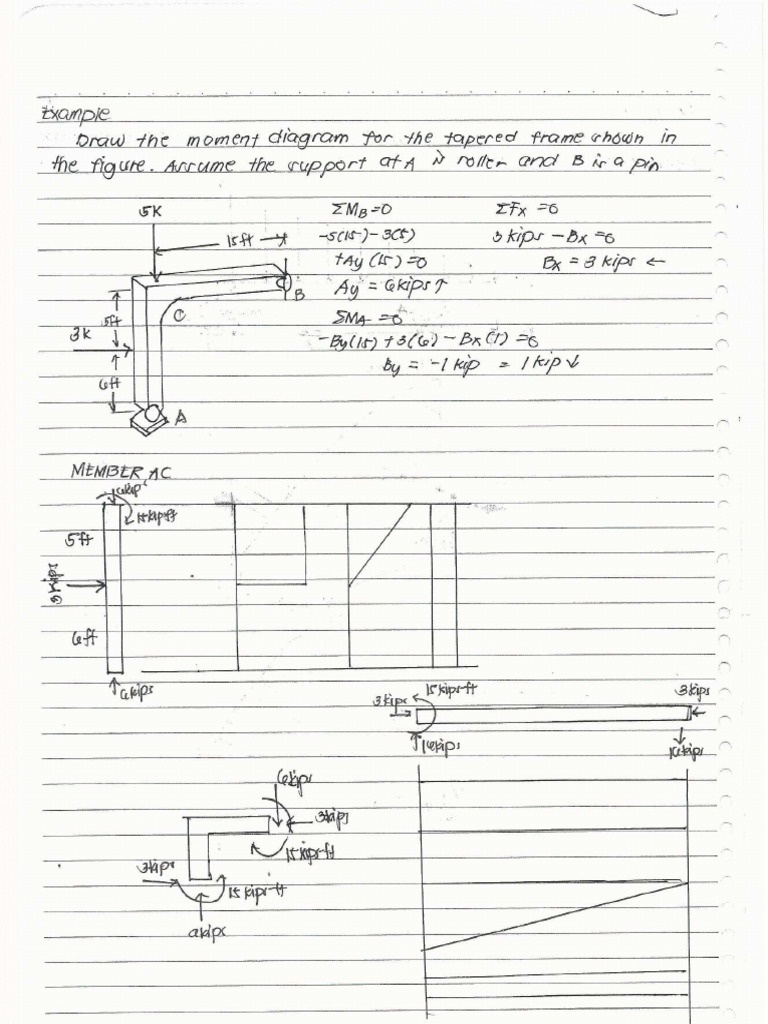 Example
Draw the moment diagram for the tapered frame shown in
the figure. Assume the support at A is roller and B is a pin
5K
15ft
B
5ft
C
3K
6ft
A
ΣMB=0
-5(15)-3(5)
+Ay(15)=0
Ay = 6kips↑
ΣMA=0
-By(15)+3(6)-Bx(1)=0
By = -1kip = 1kip↓
ΣFx=0
3kips-Bx=0
Bx = 3kips ←
MEMBER AC
6kips
15kip·ft
5ft
kips
6ft
6kips
3kips
15kips-ft
3kips
kips
kips
6kips
3kips
15kips-ft
3kips
15kips-ft
kips